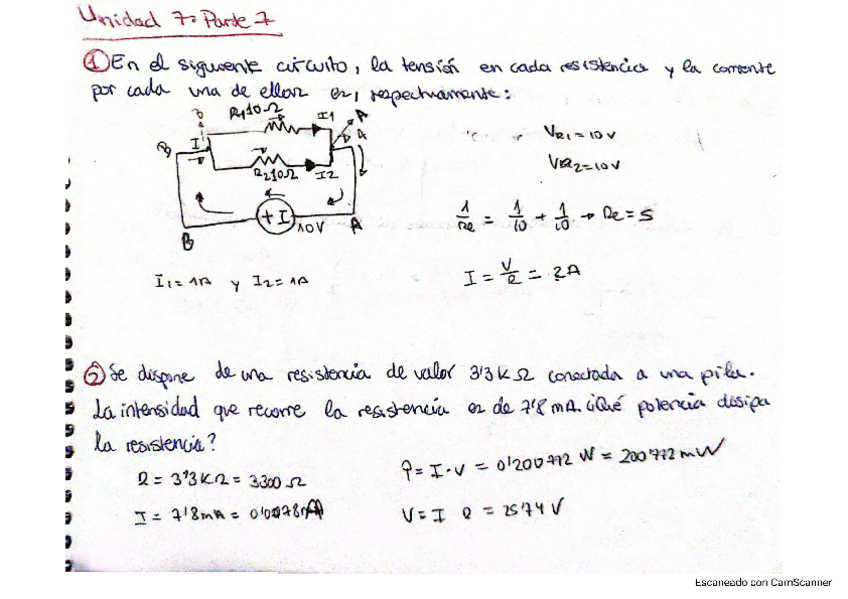 Unidad 7. Parte 7
① En el siguiente circuito, la tensión en cada resistencia y la corriente
por cada una de ellas es, respectivamente:
R1 10Ω
I1
A
B
I
A
R2 10Ω
I2
B
+ I
10V
A
VR1 = 10V
VR2 = 10V
1/Re = 1/10 + 1/10 → Re = 5
I = V/R = 2A
I1 = 1A y I2 = 1A
② Se dispone de una resistencia de valor 3'3 KΩ conectada a una pila.
La intensidad que recorre la resistencia es de 7'8 mA. ¿Qué potencia disipa
la resistencia?
R = 3'3KΩ = 3300 Ω
P = I · V = 0'200772 W = 200'772 mW
I = 7'8mA =
V = I R = 25'74 V
Escaneado con CamScanner